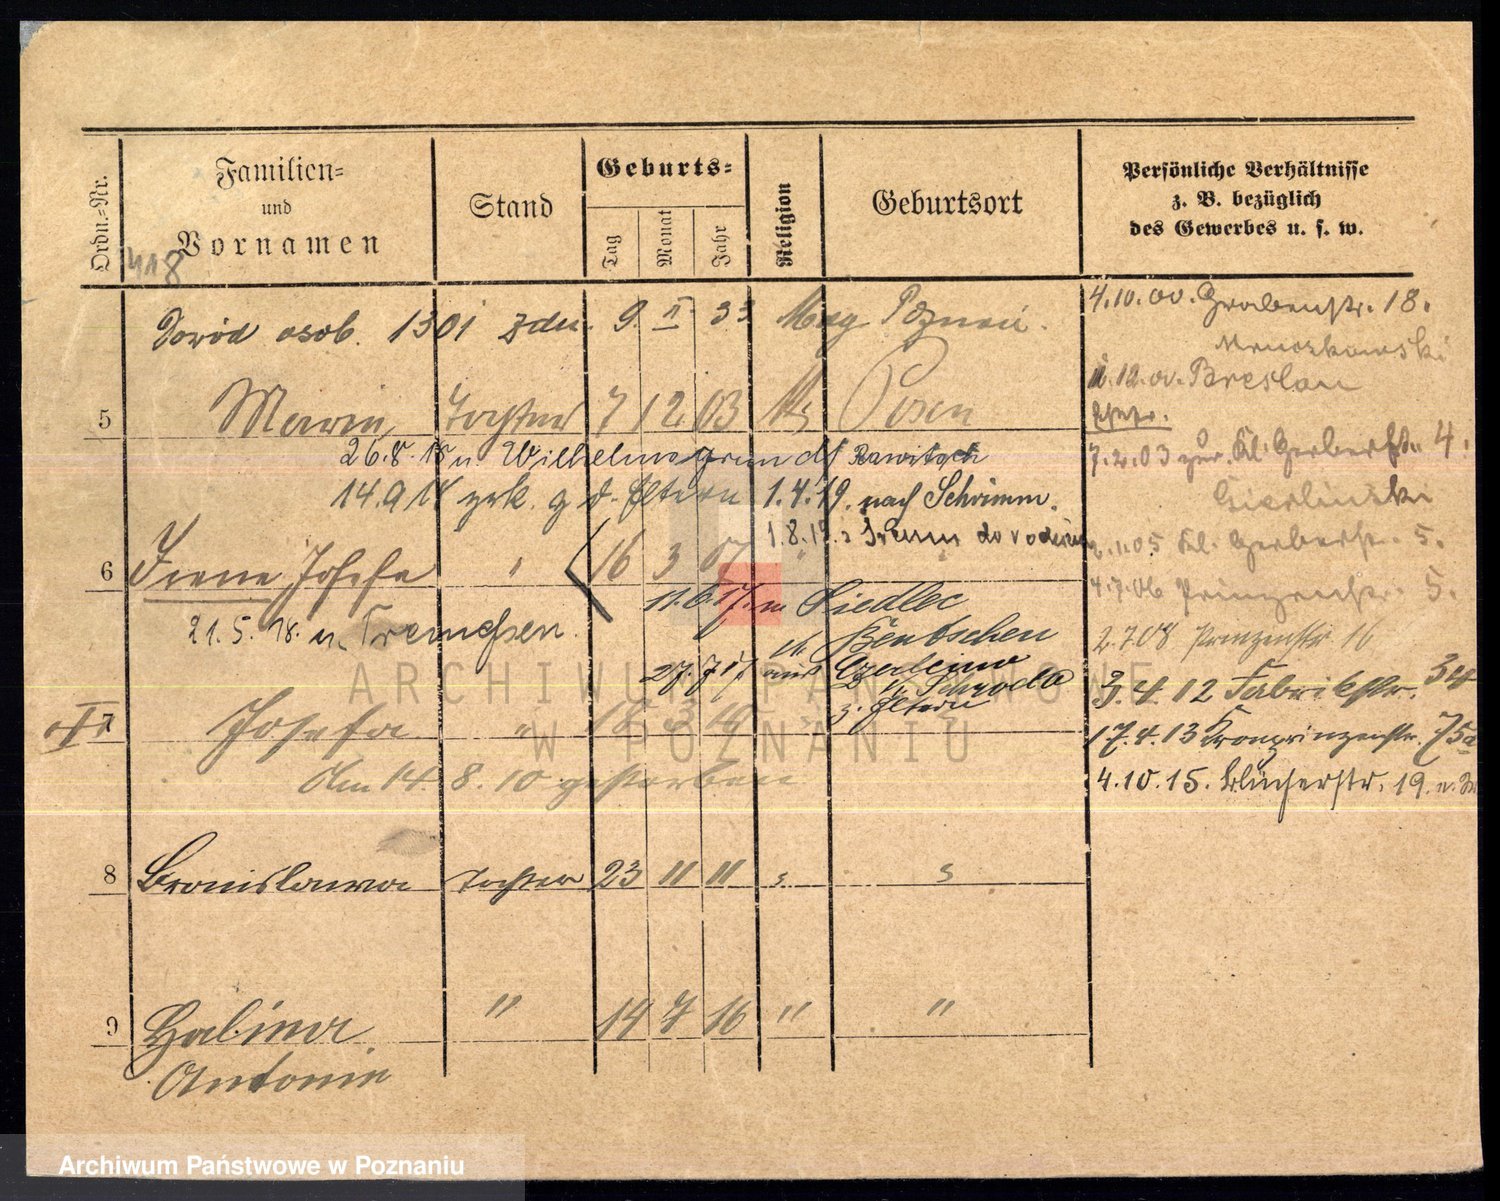 Ordn.=Nr.
Familien=
und
Vornamen
Stand
Geburts=
Tag
Monat
Jahr
Religion
Geburtsort
Persönliche Verhältnisse
z. B. bezüglich
des Gewerbes u. s. w.
418
Dowód osob. 1301 zdn. 9. II 33 Mag Poznań.
5 Marie Tochter 7 12 03 Posen
26.8.18 n. Wilhelmsgrund Rawitsch
14.9.18 zrk. z d. Eltern 1.4.19. nach Schrimm.
1.8.19. z Śremu do rodziców
6 Irene Josefa " 16 3 07 "
11.6.17. n. Siedlec
Bentschen
21.5.18. n. Tremessen.
27.7.17. aus Czerleino
Schroda
z. Eltern
† 7 Josefa " 16 3 10 "
Am 14. 8. 10 gestorben
8 Bronislawa Tochter 23 11 11 " "
9 Halina " 14 7 16 " "
Antonie
4.10.00. Grabenstr. 18.
Mruczkowski
12.00. Breslau
7.2.03 zur. Kl. Gerberstr. 4.
Gierlinski
1.05 Kl. Gerberstr. 5.
4.7.06 Prinzenstr. 5.
2.7.08 Prinzenstr. 16
3.4.12 Fabrikstr. 34
17.4.13 Kronprinzenstr. 75a
4.10.15. Blücherstr. 19.
ARCHIWUM PAŃSTWOWE
W POZNANIU
Archiwum Państwowe w Poznaniu